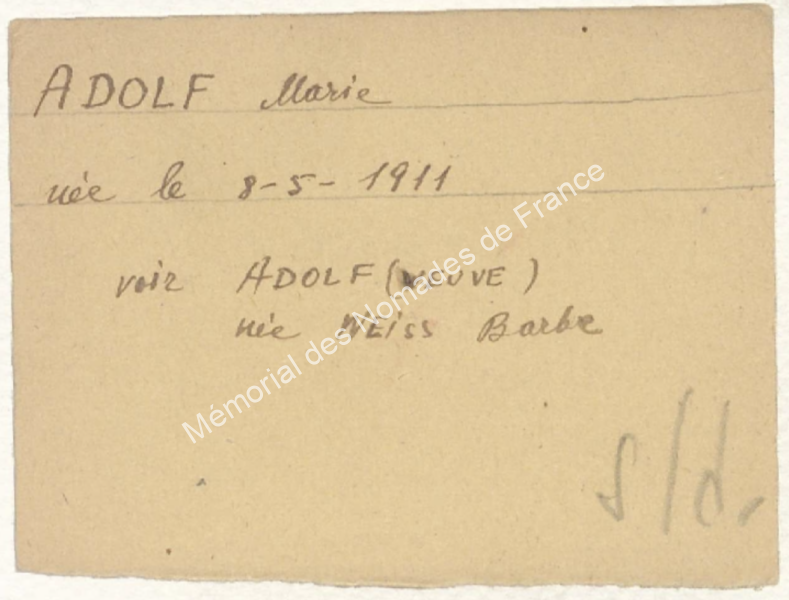 ADOLF Marie
née le 8-5-1911
voir ADOLF (VEUVE)
née WEISS Barbe
Mémorial des Nomades de France
s/d.